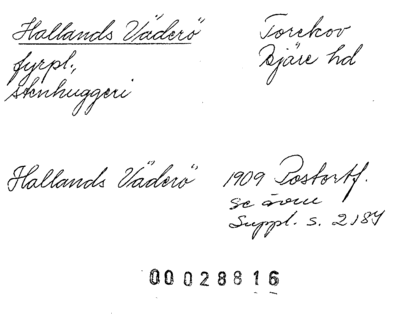 Hallands Väderö Torekov
fyrpl., Bjäre hd
stenhuggeri
Hallands Väderö 1909 Postortf.
se även
Suppl. s. 2187
00028816